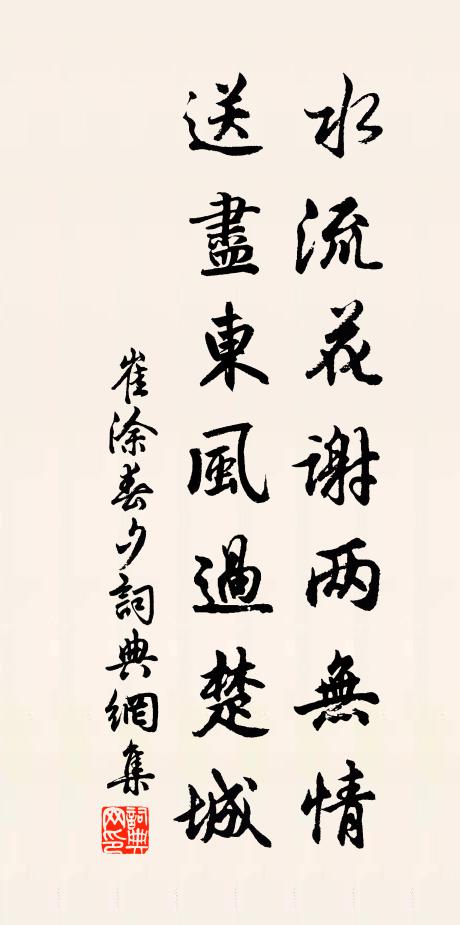 水流花謝两無情
送盡東風過楚城
崔涂春夕詞典網集
詞典网印